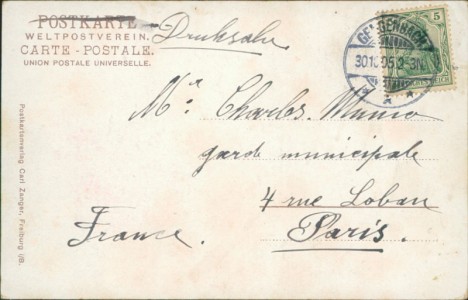 POSTKARTE
WELTPOSTVEREIN.
CARTE - POSTALE.
UNION POSTALE UNIVERSELLE.
Drucksache
GENGENBACH
5
Mr. Charles
garde municipale
4 rue Lobau
Paris.
France.
Postkartenverlag Carl Zanger, Freiburg i/B.